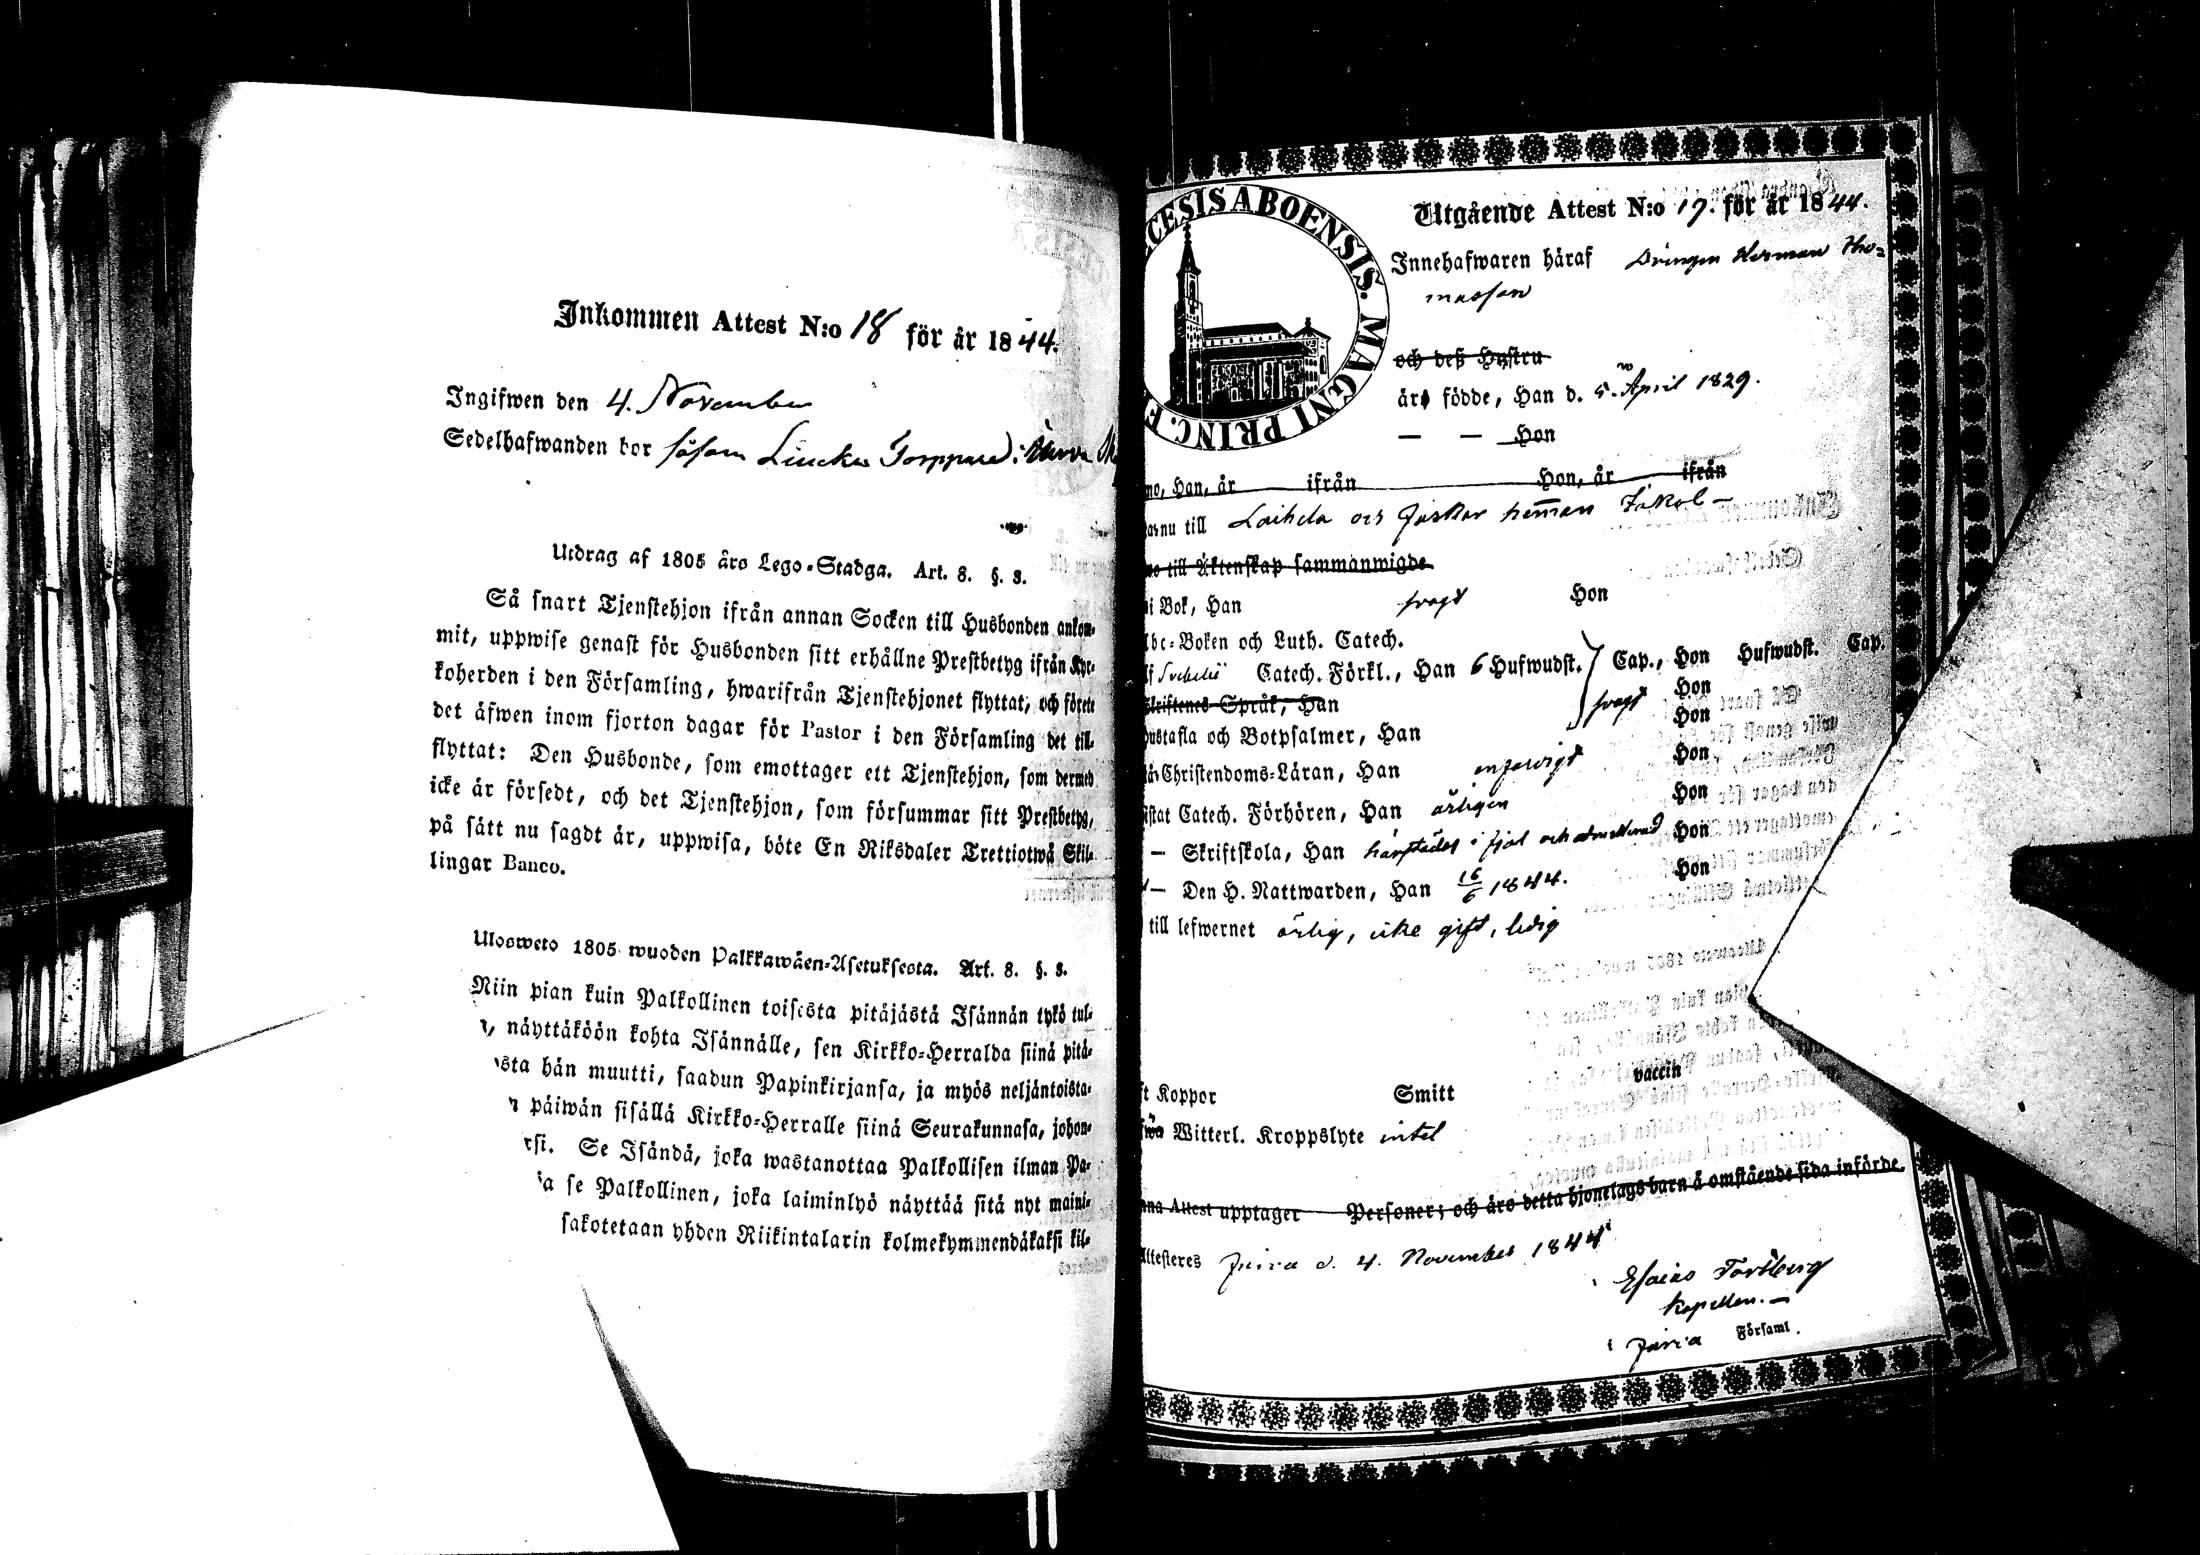 Inkommen Attest N:o 18 för år 1844.
Ingifwen den 4. November
Sedelhafwanden bor såsom Torppare i
Utdrag af 1805 års Lego-Stadga. Art. 8. §. 3.
Så snart Tjenstehjon ifrån annan Socken till Husbonden ankom-
mit, uppwise genast för Husbonden sitt erhållne Prestbetyg ifrån Kyr-
koherden i den Församling, hwarifrån Tjenstehjonet flyttat, och förete
det äfwen inom fjorton dagar för Pastor i den Församling det till-
flyttat: Den Husbonde, som emottager ett Tjenstehjon, som dermed
icke är försedt, och det Tjenstehjon, som försummar sitt Prestbetyg,
på sätt nu sagdt är, uppwisa, böte En Riksdaler Trettiotwå Skil-
lingar Banco.
Ulosweto 1805 wuoden Palkkawäen-Asetuksesta. Art. 8. §. 3.
Niin pian kuin Palkollinen toisesta pitäjästä Isännän tykö tul-
näyttäköön kohta Isännälle, sen Kirkko-Herralda siinä pitä-
sta hän muutti, saadun Papinkirjansa, ja myös neljäntoista-
päiwän sisällä Kirkko-Herralle siinä Seurakunnasa, johon-
si. Se Isändä, joka wastanottaa Palkollisen ilman Pa-
a se Palkollinen, joka laiminlyö näyttää sitä nyt maini-
sakotetaan yhden Riikintalarin kolmekymmendäkaksi kil-
CESIS ABOENSIS. MAGNI PRINC. F
Utgående Attest N:o 17. för år 1844.
Innehafwaren häraf Drängen Herman Tho-
masson
och deß Hustru
äro födde, Han d. 5. April 1829.
— — Hon
mo, Han, år ifrån Hon, år ifrån
nu till Laihela och Jakkar hemman
till Äktenskap sammanwigde
i Bok, Han svagt Hon
Abc-Boken och Luth. Catech.
Svebelii Catech. Förkl., Han 6 Hufwudst. Cap., Hon Hufwudst. Cap.
Skriftenes Språk, Han svagt Hon
Hustafla och Botpsalmer, Han Hon
Christendoms-Läran, Han Hon
istat Catech. Förhören, Han årligen Hon
— Skriftskola, Han härstädes i fjol och admitterad Hon
— Den H. Nattwarden, Han 16/6 1844. Hon
till lefwernet ärlig, icke gift, ledig
ft Koppor Smitt vaccin
Witterl. Kroppslyte intet
nna Attest upptager Personer; och äro detta hjonelags barn å omstående sida införde.
Attesteres d. 4. November 1844
Esaias Forsberg
Kapellan. —
i Församl.